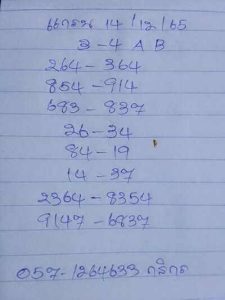 14/12/65
3-4 A B
264-364
854-914
683-837
26-34
84-19
14-37
2364-8354
9147-6837
057-1264633